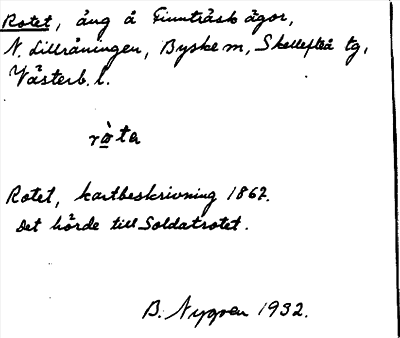 Rotet, äng å Finnträsk ägor,
N. Lillråningen, Byske m, Skellefteå tg,
Västerb. l.
ròta
Rotet, kartbeskrivning 1867.
Det hörde till Soldatrotet.
B. Nygren 1932.